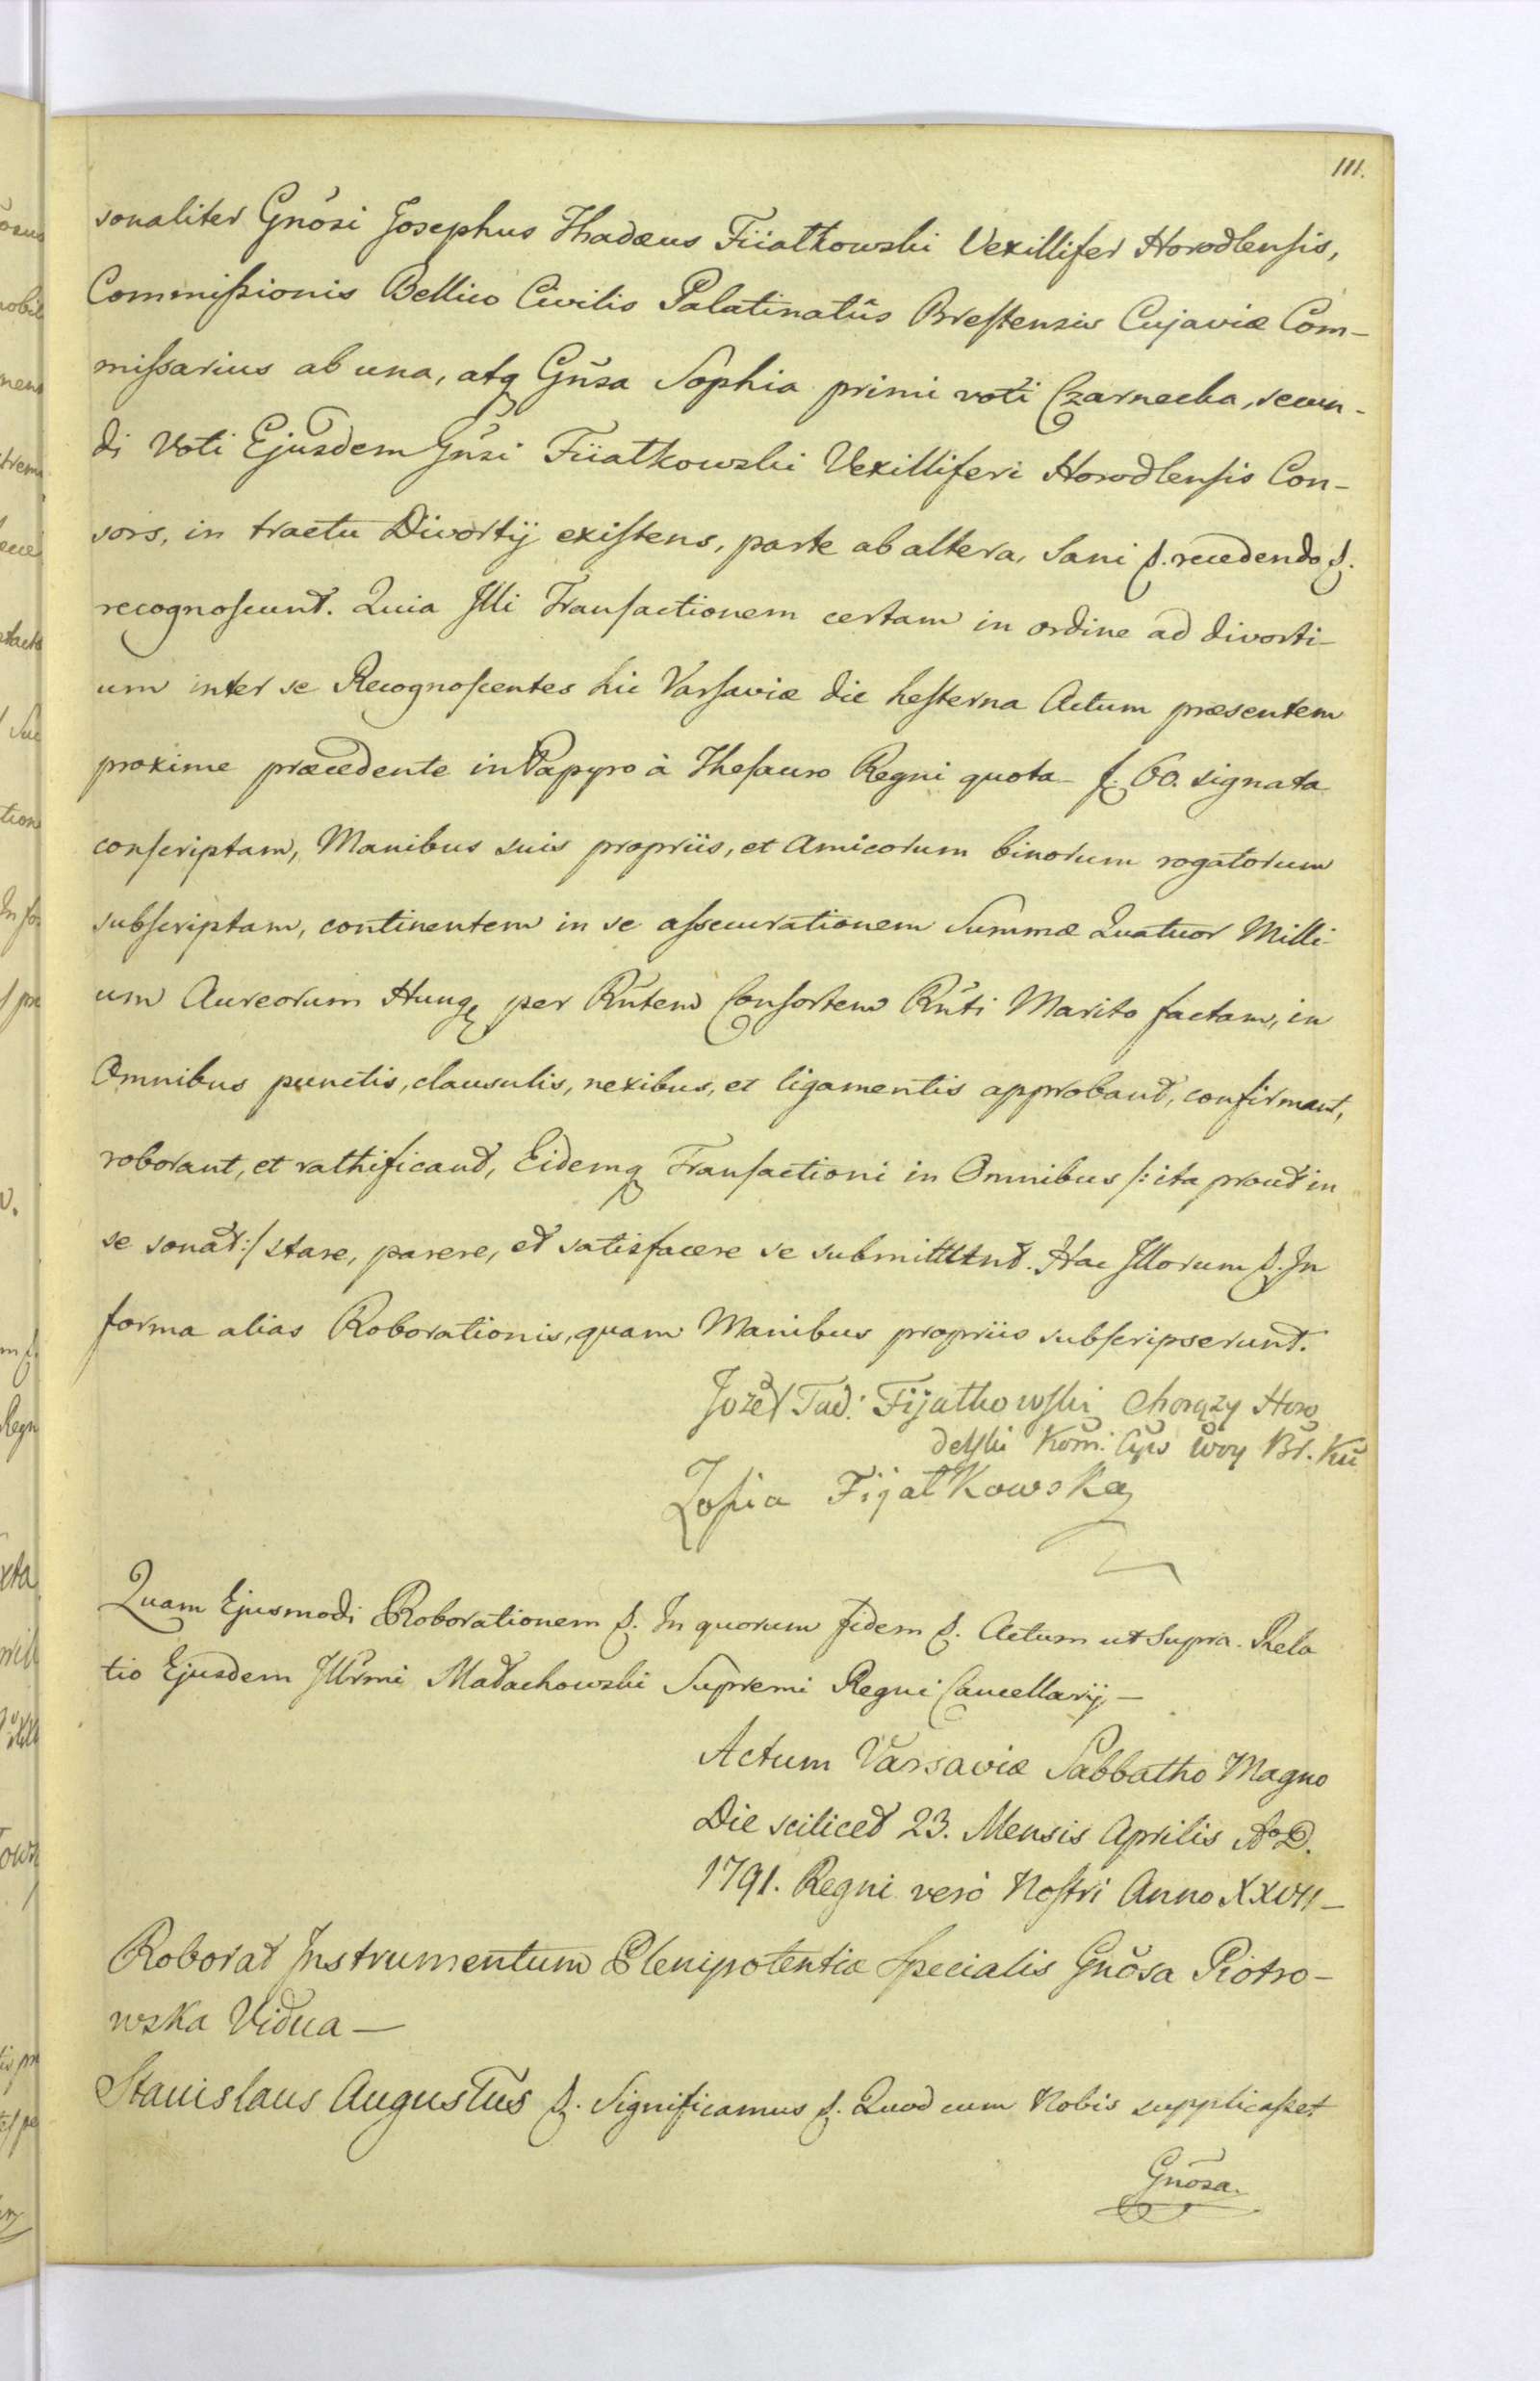 111.
sonaliter Gnösi Josephus Thadæus Fiiałkowski Vexillifer Horodlensis,
Commissionis Bellico Civilis Palatinatûs Brestensis Cujaviæ Com-
missarius ab una, atq Gnsa Sophia primi voti Czarnecka, secun-
di Voti Ejusdem Gnsi Fiiałkowski Vexilliferi Horodlensis Con-
sors, in tractu Divortij existens, parte ab altera, Sani &. recedendo &.
recognoscunt. Quia Illi Transactionem certam in ordine ad divorti-
um inter se Recognoscentes hic Varsaviæ die hesterna Actum præsentem
proxime præcedente in Papyro à Thesauro Regni quota f. 60. signata
conscriptam, Manibus suis propriis, et Amicorum binorum rogatorum
subscriptam, continentem in se assecurationem Summæ Quatuor Milli-
um Aureorum Hung per Rntem Consortem Rnti Marito factam, in
Omnibus punctis, clausulis, nexibus, et ligamentis approbant, confirmant,
roborant, et rathificant, Eidemq Transactioni in Omnibus /: ita prout in
se sonat :/ stare, parere, et satisfacere se submittunt. Hac Illorum &. In
forma alias Roborationis, quam Manibus propriis subscripserunt.
Jozef Tad: Fijałkowski Chorązy Horo
delski Kom: Cyw Woy Br. Ku
Zofia Fijałkowska
Quam Ejusmodi Roborationem &. In quorum fidem &. Actum ut Supra. Rela
tio Ejusdem Illrmi Małachowski Supremi Regni Cancellarij –
Actum Varsaviæ Sabbatho Magno
Die scilicet 23. Mensis Aprilis Ao D.
1791. Regni verò Nostri Anno XXVII –
Roborat Instrumentum Plenipotentiæ Specialis Gnosa Piotro-
wska Vidua –
Stanislaus Augustus &. Significamus &. Quod cum Nobis supplicasset
Gnosa.